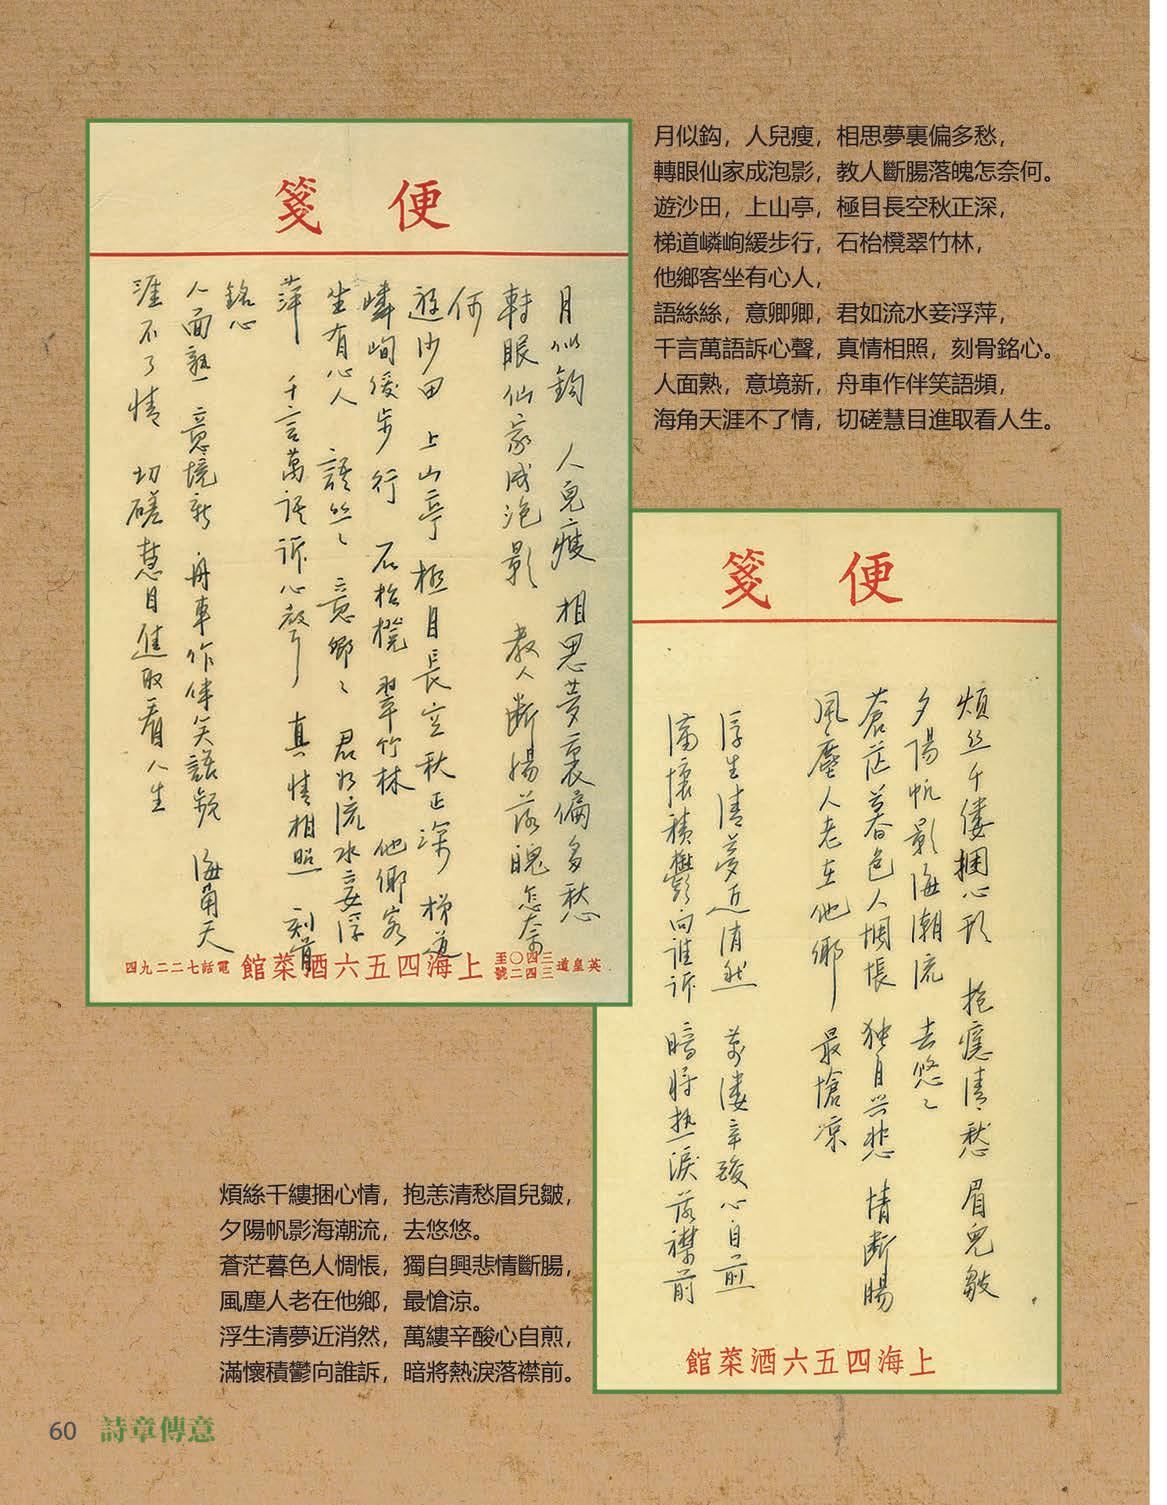 便箋
月似鈎 人兒瘦 相思夢裏偏多愁
轉眼仙家成泡影 教人斷腸落魄怎奈
何
遊沙田 上山亭 極目長空秋正深 梯道
嶙峋緩步行 石枱櫈 翠竹林 他鄉客
坐有心人 語絲〻 意卿〻 君如流水妾浮
萍 千言萬語訴心聲 真情相照 刻骨
銘心
人面熟 意境新 舟車作伴笑語頻 海角天
涯不了情 切磋慧目進取看人生
英皇道三四〇至三四二號上海四五六酒菜館電話七二二九四
月似鈎，人兒瘦，相思夢裏偏多愁，
轉眼仙家成泡影，教人斷腸落魄怎奈何。
遊沙田，上山亭，極目長空秋正深，
梯道嶙峋緩步行，石枱櫈翠竹林，
他鄉客坐有心人，
語絲絲，意卿卿，君如流水妾浮萍，
千言萬語訴心聲，真情相照，刻骨銘心。
人面熟，意境新，舟車作伴笑語頻，
海角天涯不了情，切磋慧目進取看人生。
便箋
煩絲千縷捆心形 抱癒清愁 眉兒皺
夕陽帆影海潮流 去悠〻
蒼茫暮色人惆悵 独自兴悲 情断腸
風塵人老在他鄉 最愴凉
浮生清夢近消然 萬縷辛酸心自煎
滿懷積鬱向誰訴 暗將热淚落襟前
上海四五六酒菜館
煩絲千縷捆心情，抱恙清愁眉兒皺，
夕陽帆影海潮流，去悠悠。
蒼茫暮色人惆悵，獨自興悲情斷腸，
風塵人老在他鄉，最愴涼。
浮生清夢近消然，萬縷辛酸心自煎，
滿懷積鬱向誰訴，暗將熱淚落襟前。
60 詩章傳意